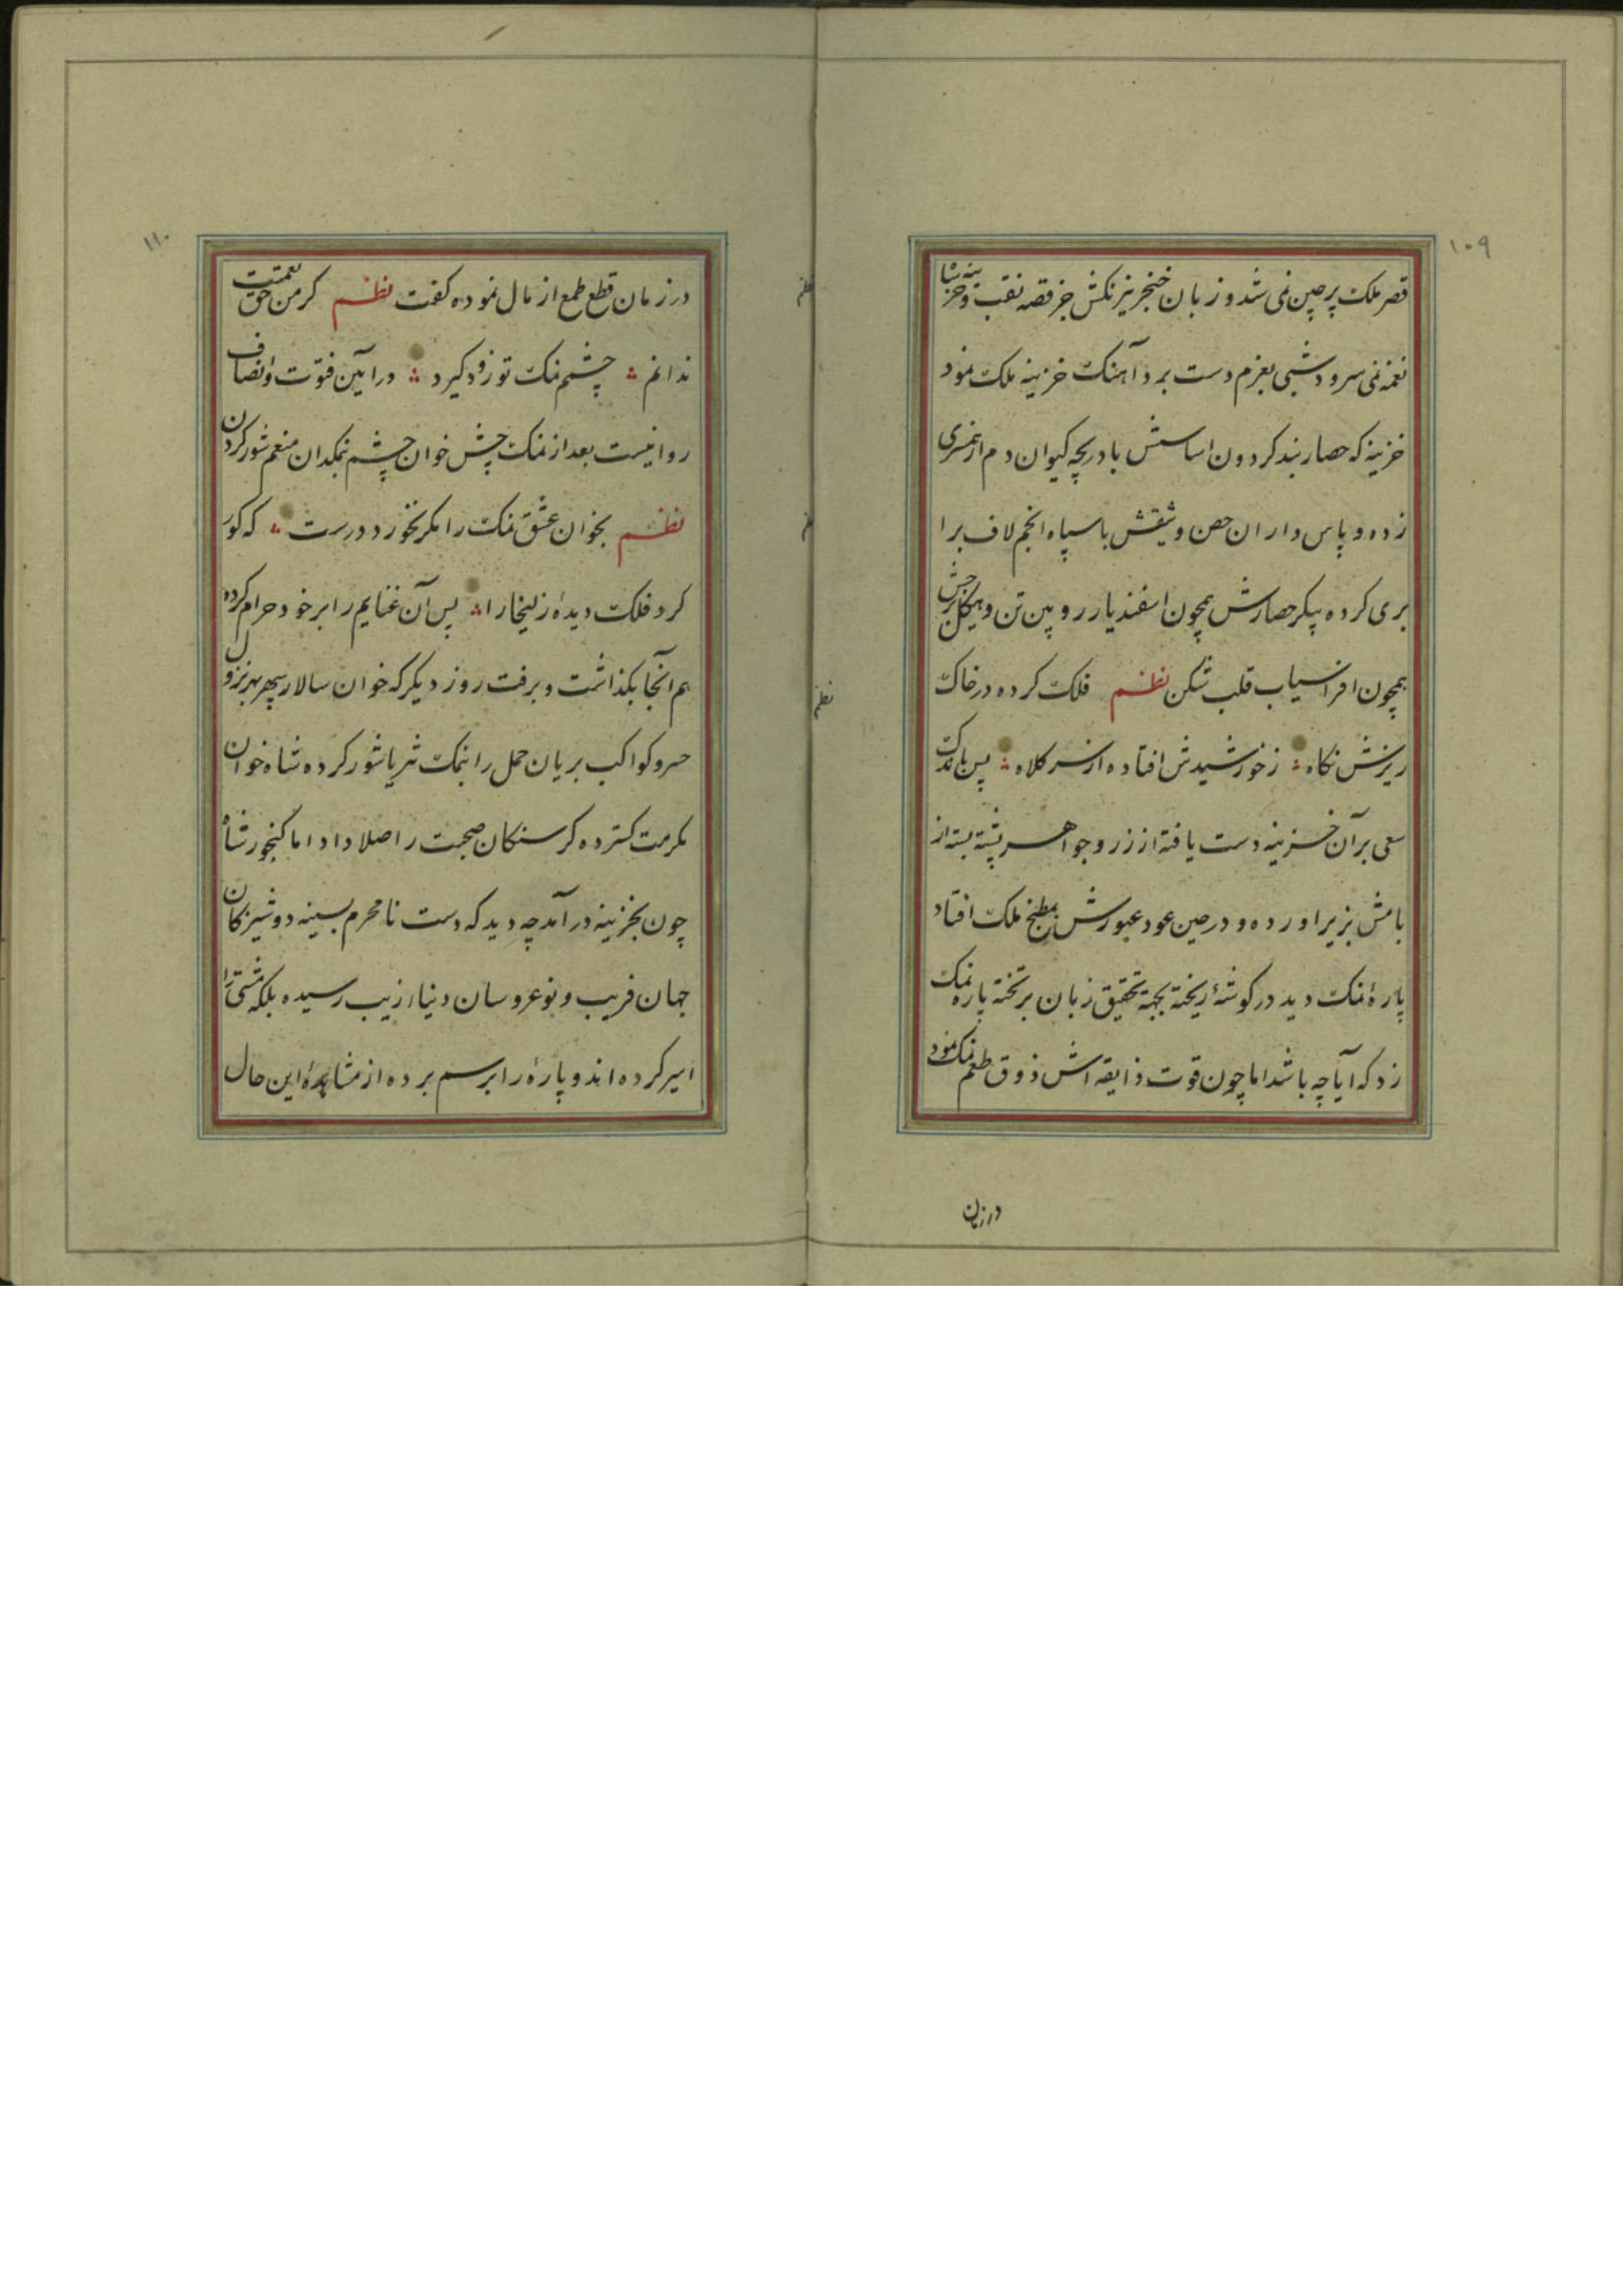 ۱۰۹
قصر ملک پرچین نمی شد و زبان خنجر تیزنکش جز قصه نقب و خزینه شا
نغمه نمی سرود شبی بعزم دست برد آهنک خزینه ملک نمود
خزینه که حصار بند کردون اساسش با دریچه کیوان دم از همسری
زده و پاس داران حصن وثیقش با سپاه انجم لاف برا
بری کرده پیکر حصارش همچون اسفندیار رویین تن و هیکل
همچون افراسیاب قلب شکن نظم فلک کرده در خاک
ریزش نکاه ز خورشیدش افتاده از سر کلاه پس باندک
سعی بر آن خزینه دست یافته از زر و جواهر پشته بسته از
بامش بزیر اورده و در حین عود عبورش بمطبخ ملک افتاد
پارهٔ نمک دید در کوشهٔ ریخته بجهة تحقیق زبان بر تخته پاره نمک
زد که آیا چه باشد اما چون قوت ذایقه اش ذوق طعم نمک نمود
در زمان
۱۱۰
در زمان قطع طمع از مال نموده کفت نظم کر من حق نعمتت
ندانم چشمم نمک تو زود کیرد در آیین فتوت و انصاف
روا نیست بعد از نمک چش خوان چشم نمکدان منعم شور کردن
نظم بخوان عشق نمک را مکر نخورد درست که کور
کرد فلک دیدهٔ زلیخا را پس آن غنایم را بر خود حرام کرده
هم آنجا بکذاشت و برفت روز دیکر که خوان سالار سپهر بهر نزول
خسرو کواکب بریان حمل را بنمک ثریا شور کرده شاه خوان
مکرمت کسترده کرسنکان صحبت را صلا داد اما کنجور شاه
چون بخزینه در آمد چه دید که دست نامحرم بسینه دوشیزکان
جهان فریب و نوعروسان دنیا زیب رسیده بلکه مشتی را
اسیر کرده اند و پارهٔ را برسم برده از مشاهدهٔ این حال
نظم
نظم
نظم